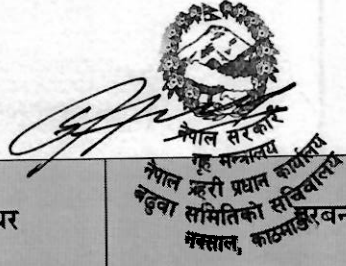 नेपाल सरकार
गृह मन्त्रालय
नेपाल प्रहरी प्रधान कार्यालय
बढुवा समितिको सचिवालय
नक्साल, काठमाडौं